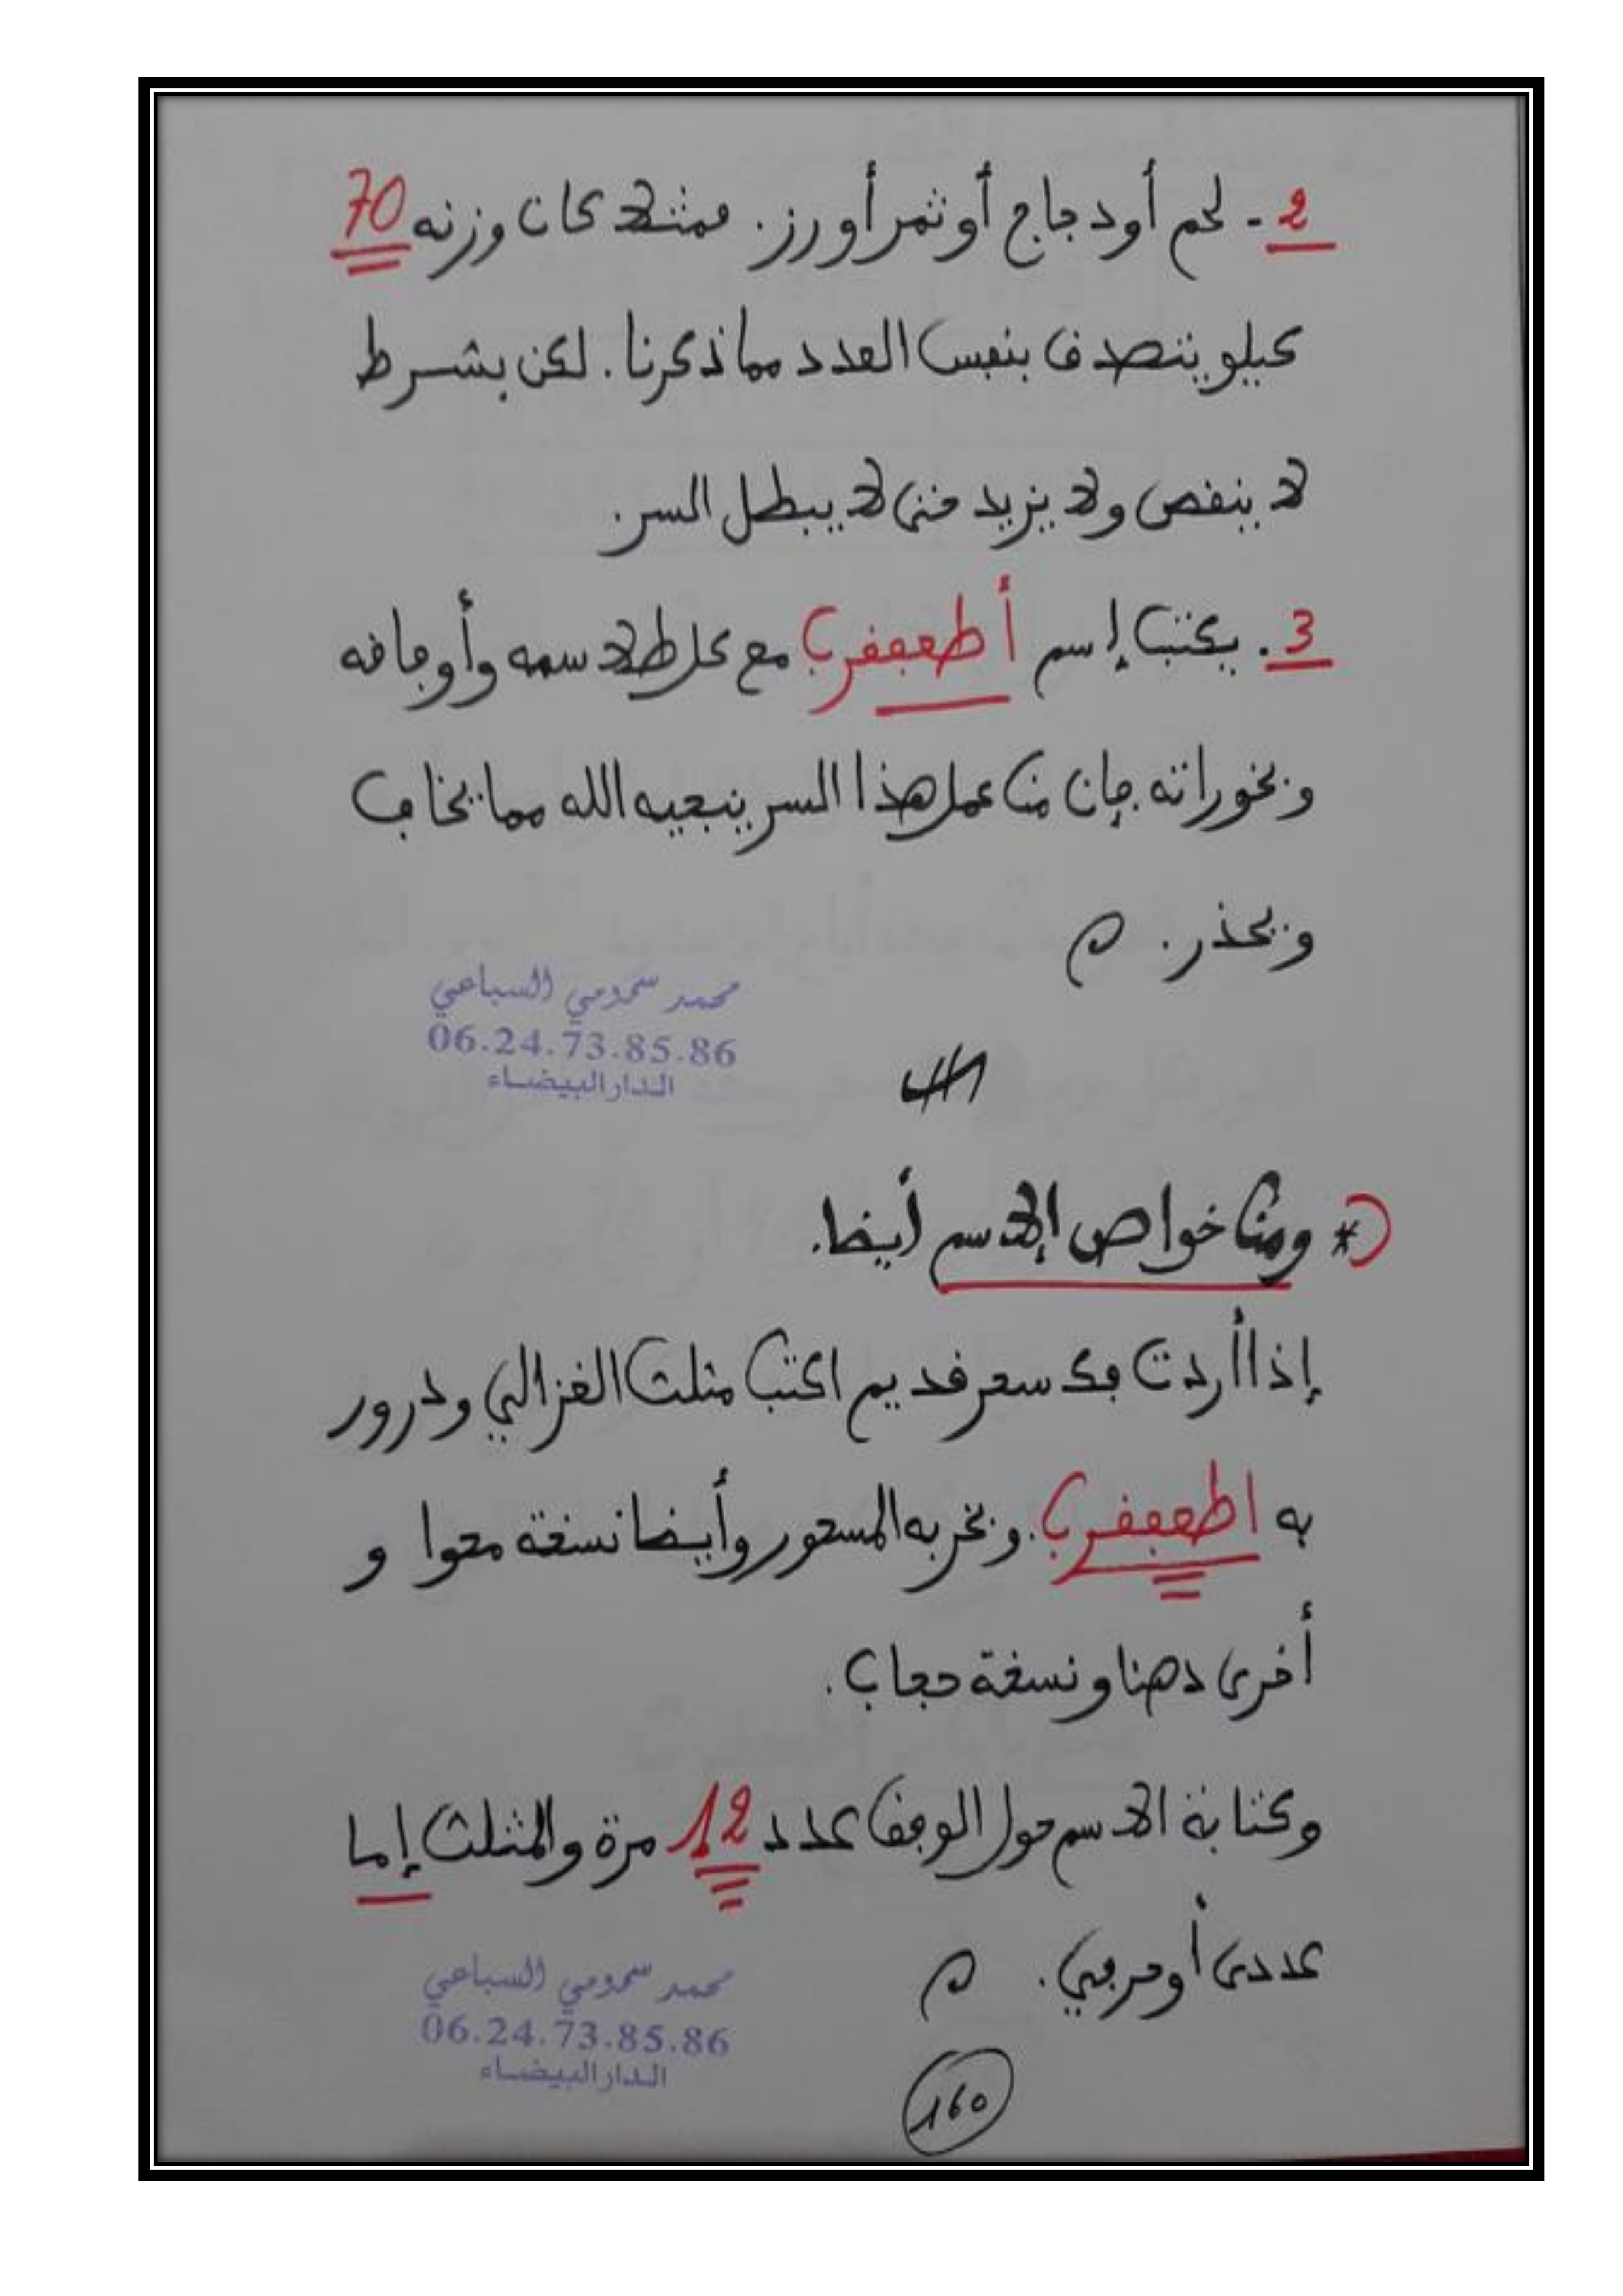 2- لحم أو دجاج أو ثمر أو رز. فمثلا كان وزنه 70
كيلو يتصدق بنفس العدد مما ذكرنا. لكن بشرط
لا ينقص ولا يزيد حتى لا يبطل السر.
3. يكتب إسم أطعفقرب مع كل طلاسمه وأوفاقه
وبخوراته فإن من عمل هذا السر ينجيه الله مما يخاف
ويحذر. م
محمد سمومي السباعي
06.24.73.85.86
الدار البيضاء
* ومن خواص الإسم أيضا.
إذا أردت فك سحر قديم اكتب مثلث الغزالي ودرور
به اطعفقرب. وبخر به المسحور وأيضا نسخة محوا و
أخرى دهنا ونسخة حجاب.
وكتابة الاسم حول الوفق عدد 12 مرة والمثلث إما
عددي أو حرفي. م
محمد سمومي السباعي
06.24.73.85.86
الدار البيضاء
160